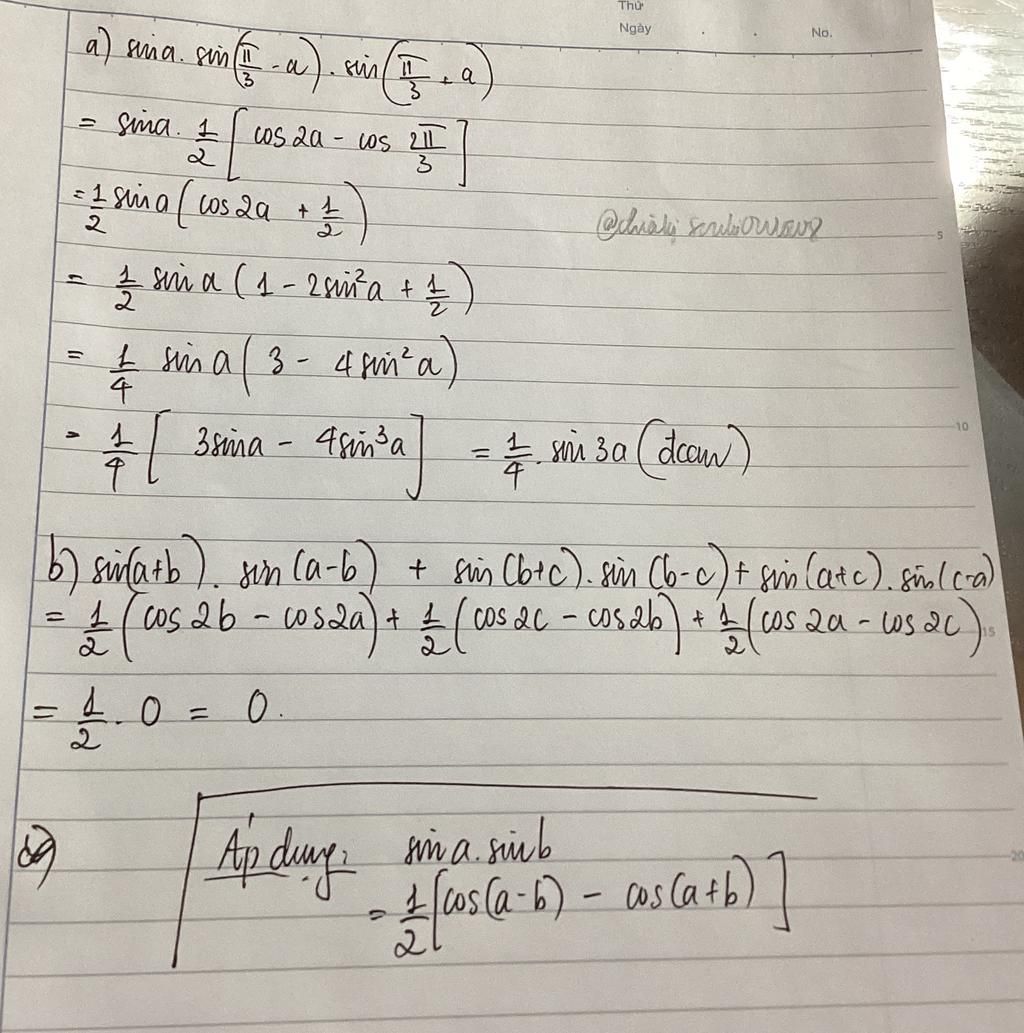 Thứ
Ngày . . No.
a) sina. sin(π/3 - a). sin(π/3 + a)
= sina. 1/2 [cos 2a - cos 2π/3]
= 1/2 sin a (cos 2a + 1/2)
= 1/2 sin a (1 - 2sin²a + 1/2)
= 1/4 sin a (3 - 4 sin²a)
= 1/4 [3sina - 4sin³a] = 1/4. sin 3a (đccm)
b) sin(a+b). sin(a-b) + sin(b+c). sin(b-c) + sin(a+c). sin(c-a)
= 1/2 (cos 2b - cos2a) + 1/2 (cos 2c - cos2b) + 1/2 (cos 2a - cos 2c)
= 1/2 . 0 = 0.
Áp dụng: sin a. sin b
= 1/2 [cos(a-b) - cos(a+b)]
5
10
15
20